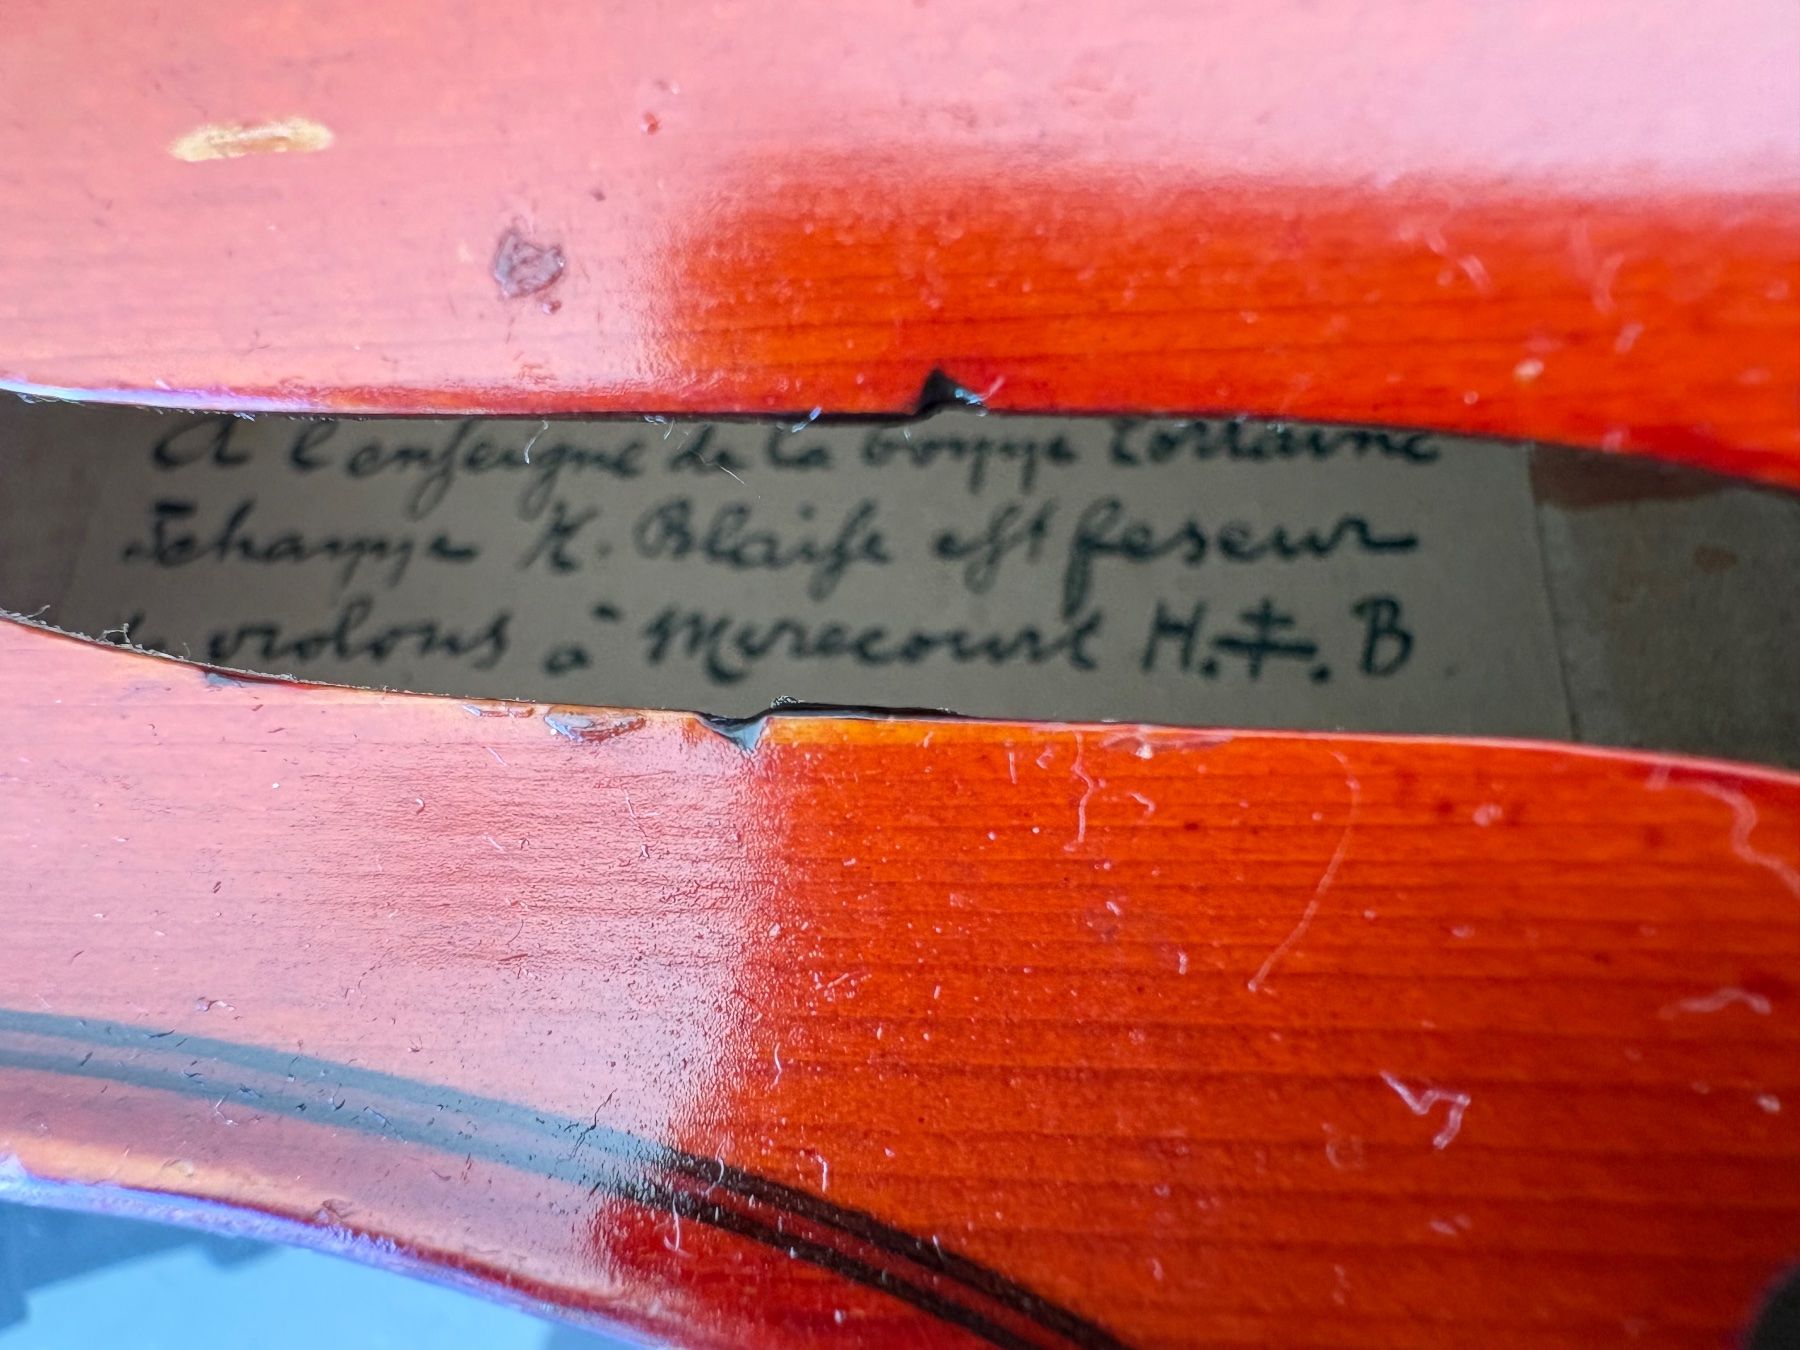 A l'enſeigne de la bonne Lorraine
Jehanne H. Blaiſe eſt feseur
de violons à Mirecourt H.‡.B